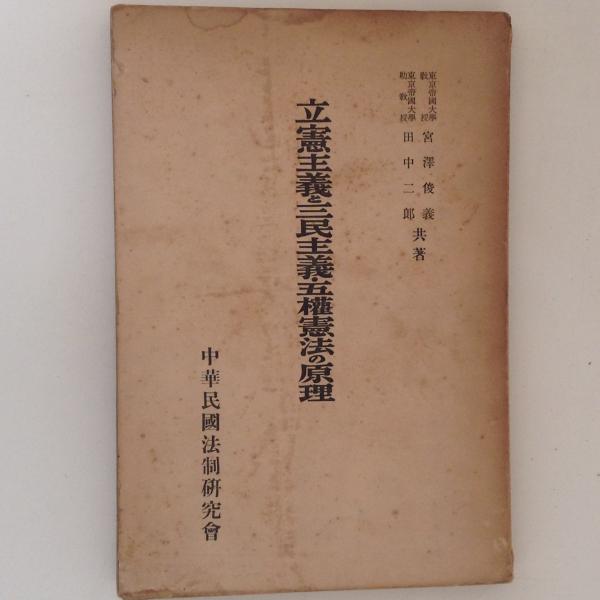 東京帝國大學教授
宮澤俊義
東京帝國大學助教授
田中二郎
共著
立憲主義と三民主義・五權憲法の原理
中華民國法制研究會